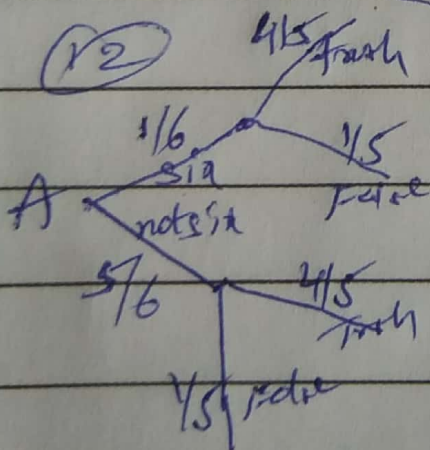 12
4/5
Truth
1/6
six
1/5
False
A
not six
5/6
4/5
Truth
1/5 False